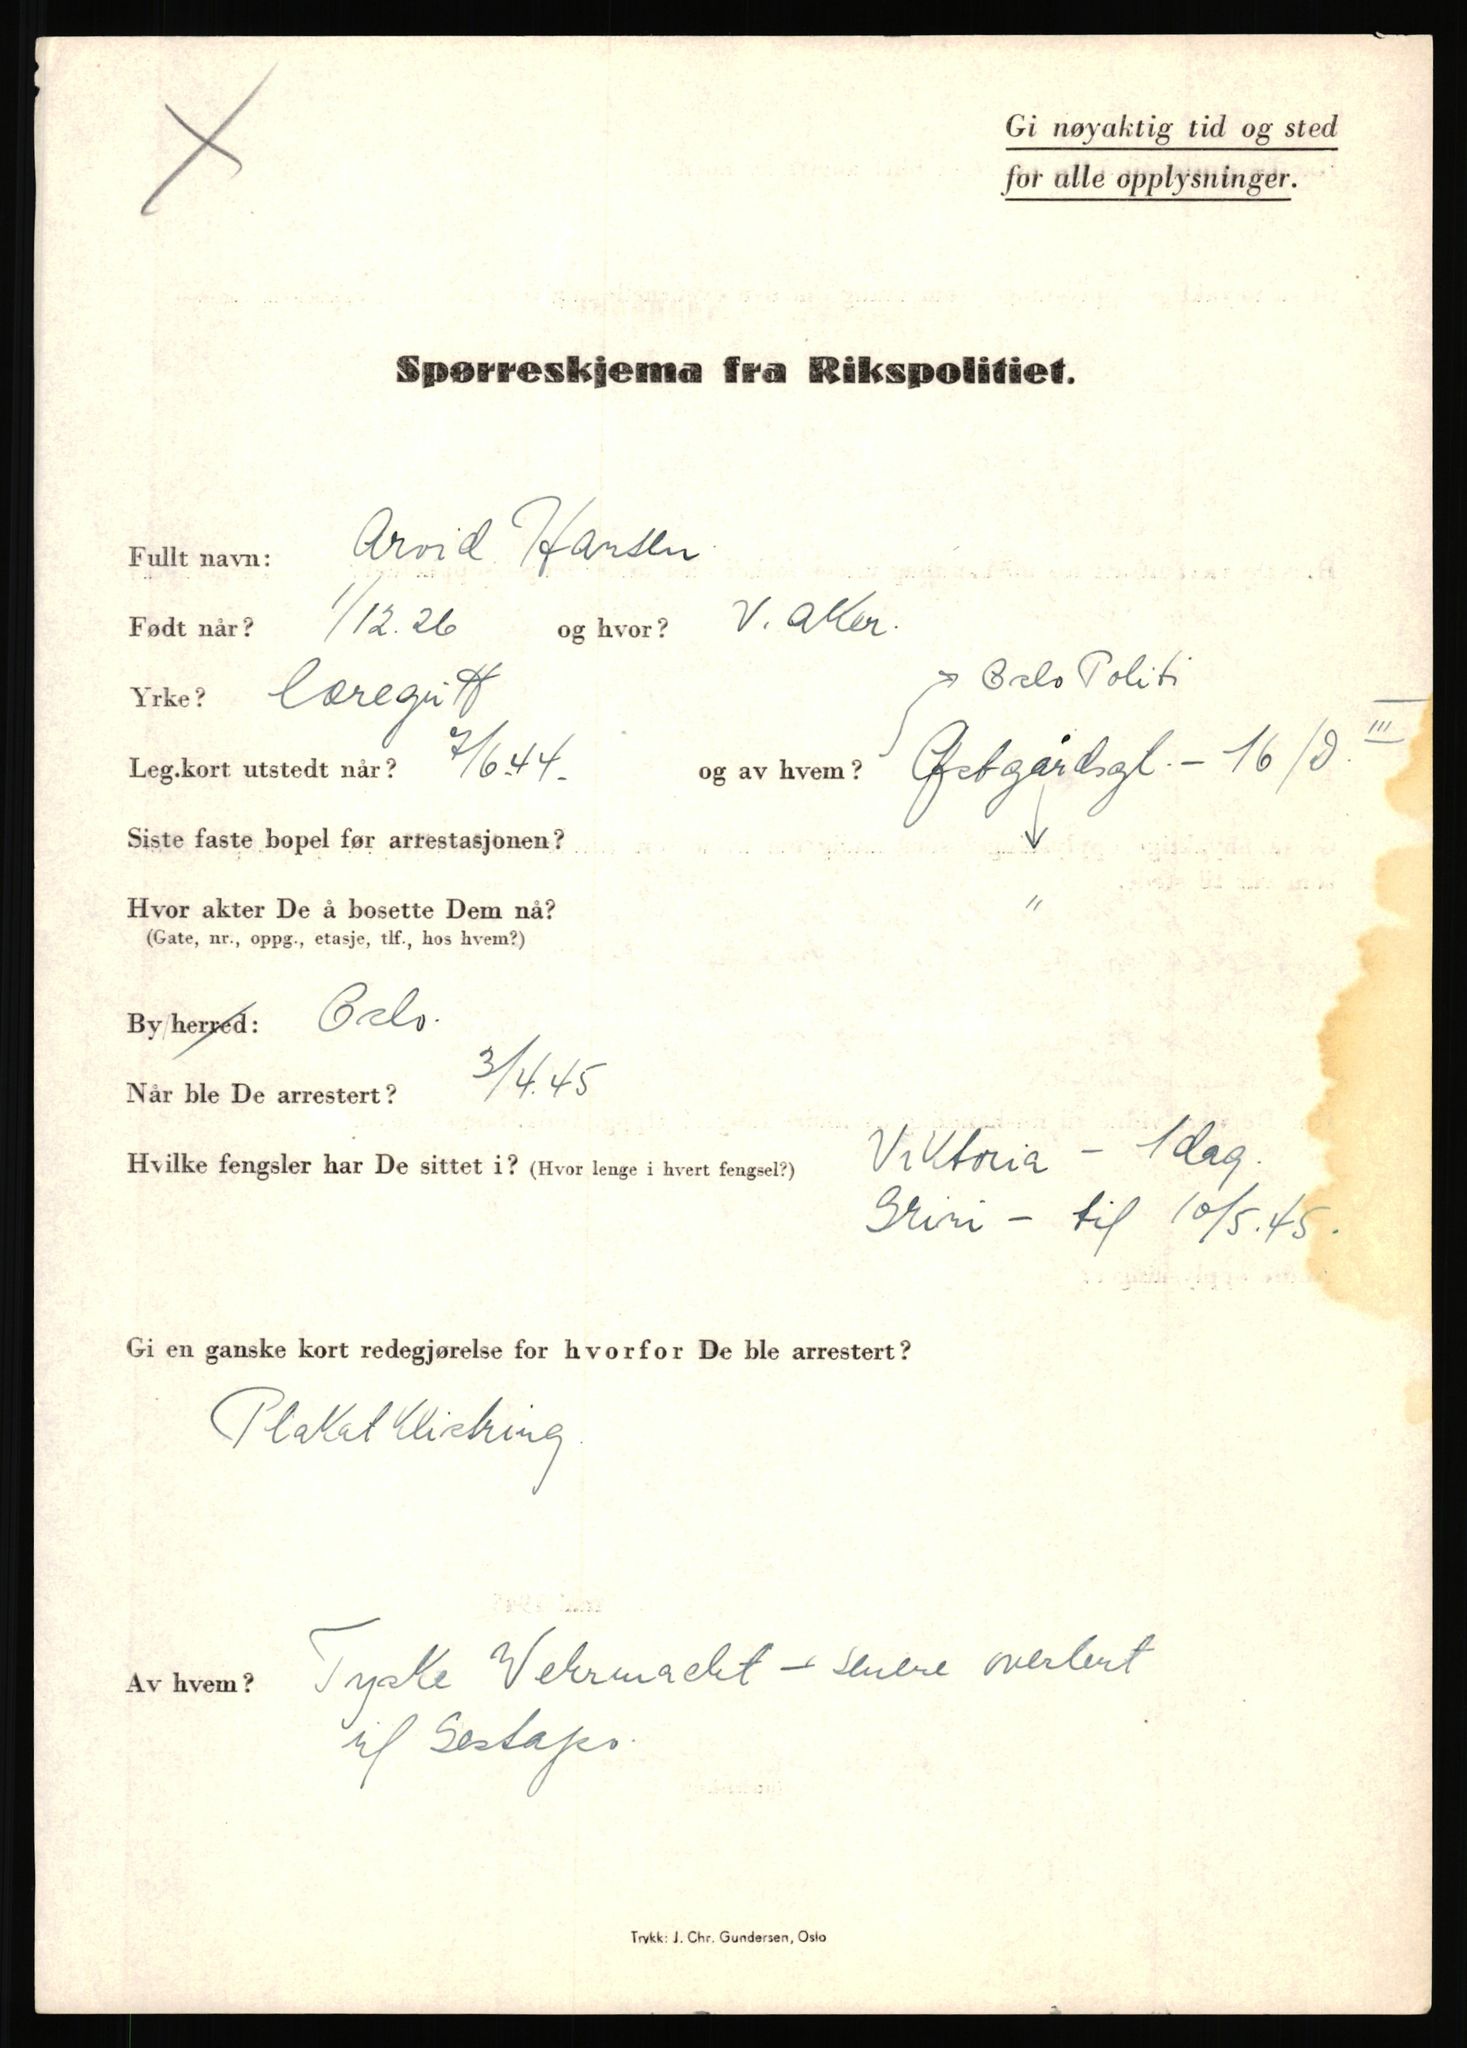 Gi nøyaktig tid og sted
for alle opplysninger.
Spørreskjema fra Rikspolitiet.
Fullt navn: Arvid Hansen
Født når? 1/12.26 og hvor? V. Aker.
Yrke? Læregutt
Oslo Politi
Leg.kort utstedt når? 7/6.44. og av hvem? gårdsgt. - 16/D. III
Siste faste bopel før arrestasjonen?
Hvor akter De å bosette Dem nå? "
(Gate, nr., oppg., etasje, tlf., hos hvem?)
By/herred: Oslo.
Når ble De arrestert? 3/4.45
Hvilke fengsler har De sittet i? (Hvor lenge i hvert fengsel?) Viktoria - 1 dag.
Grini - til 10/5.45.
Gi en ganske kort redegjørelse for hvorfor De ble arrestert?
Plakatklistring.
Av hvem? Tyske Wehrmacht - senere overlevert
til Gestapo.
Trykk: J. Chr. Gundersen, Oslo